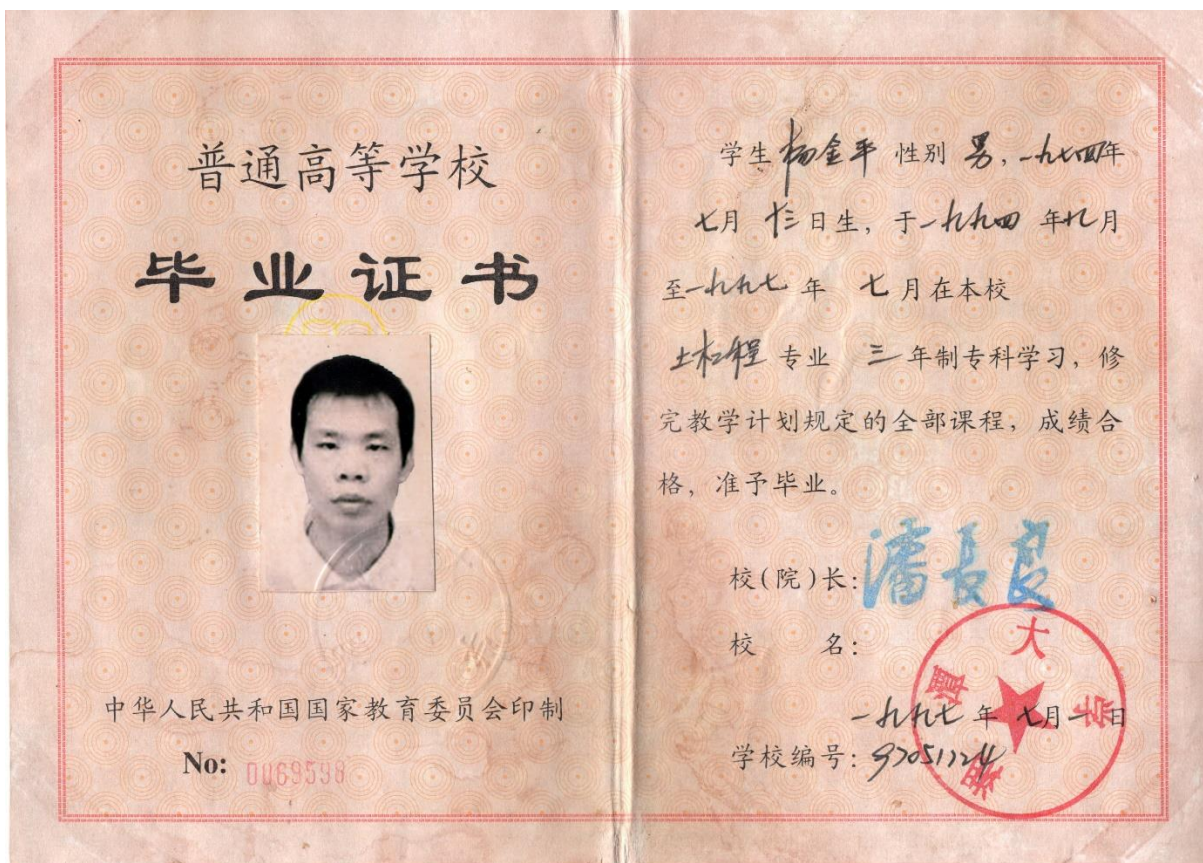 普通高等学校
毕业证书
中华人民共和国国家教育委员会印制
No: 0069598
学生杨金平 性别 男,一九七四年
七月 十三日生,于一九九四 年九月
至一九九七 年 七月在本校
土木工程 专业 三年制专科学习,修
完教学计划规定的全部课程,成绩合
格,准予毕业。
校(院)长:潘长良
校 名:
湘潭大学
一九九七 年 七月一日
学校编号:97051224